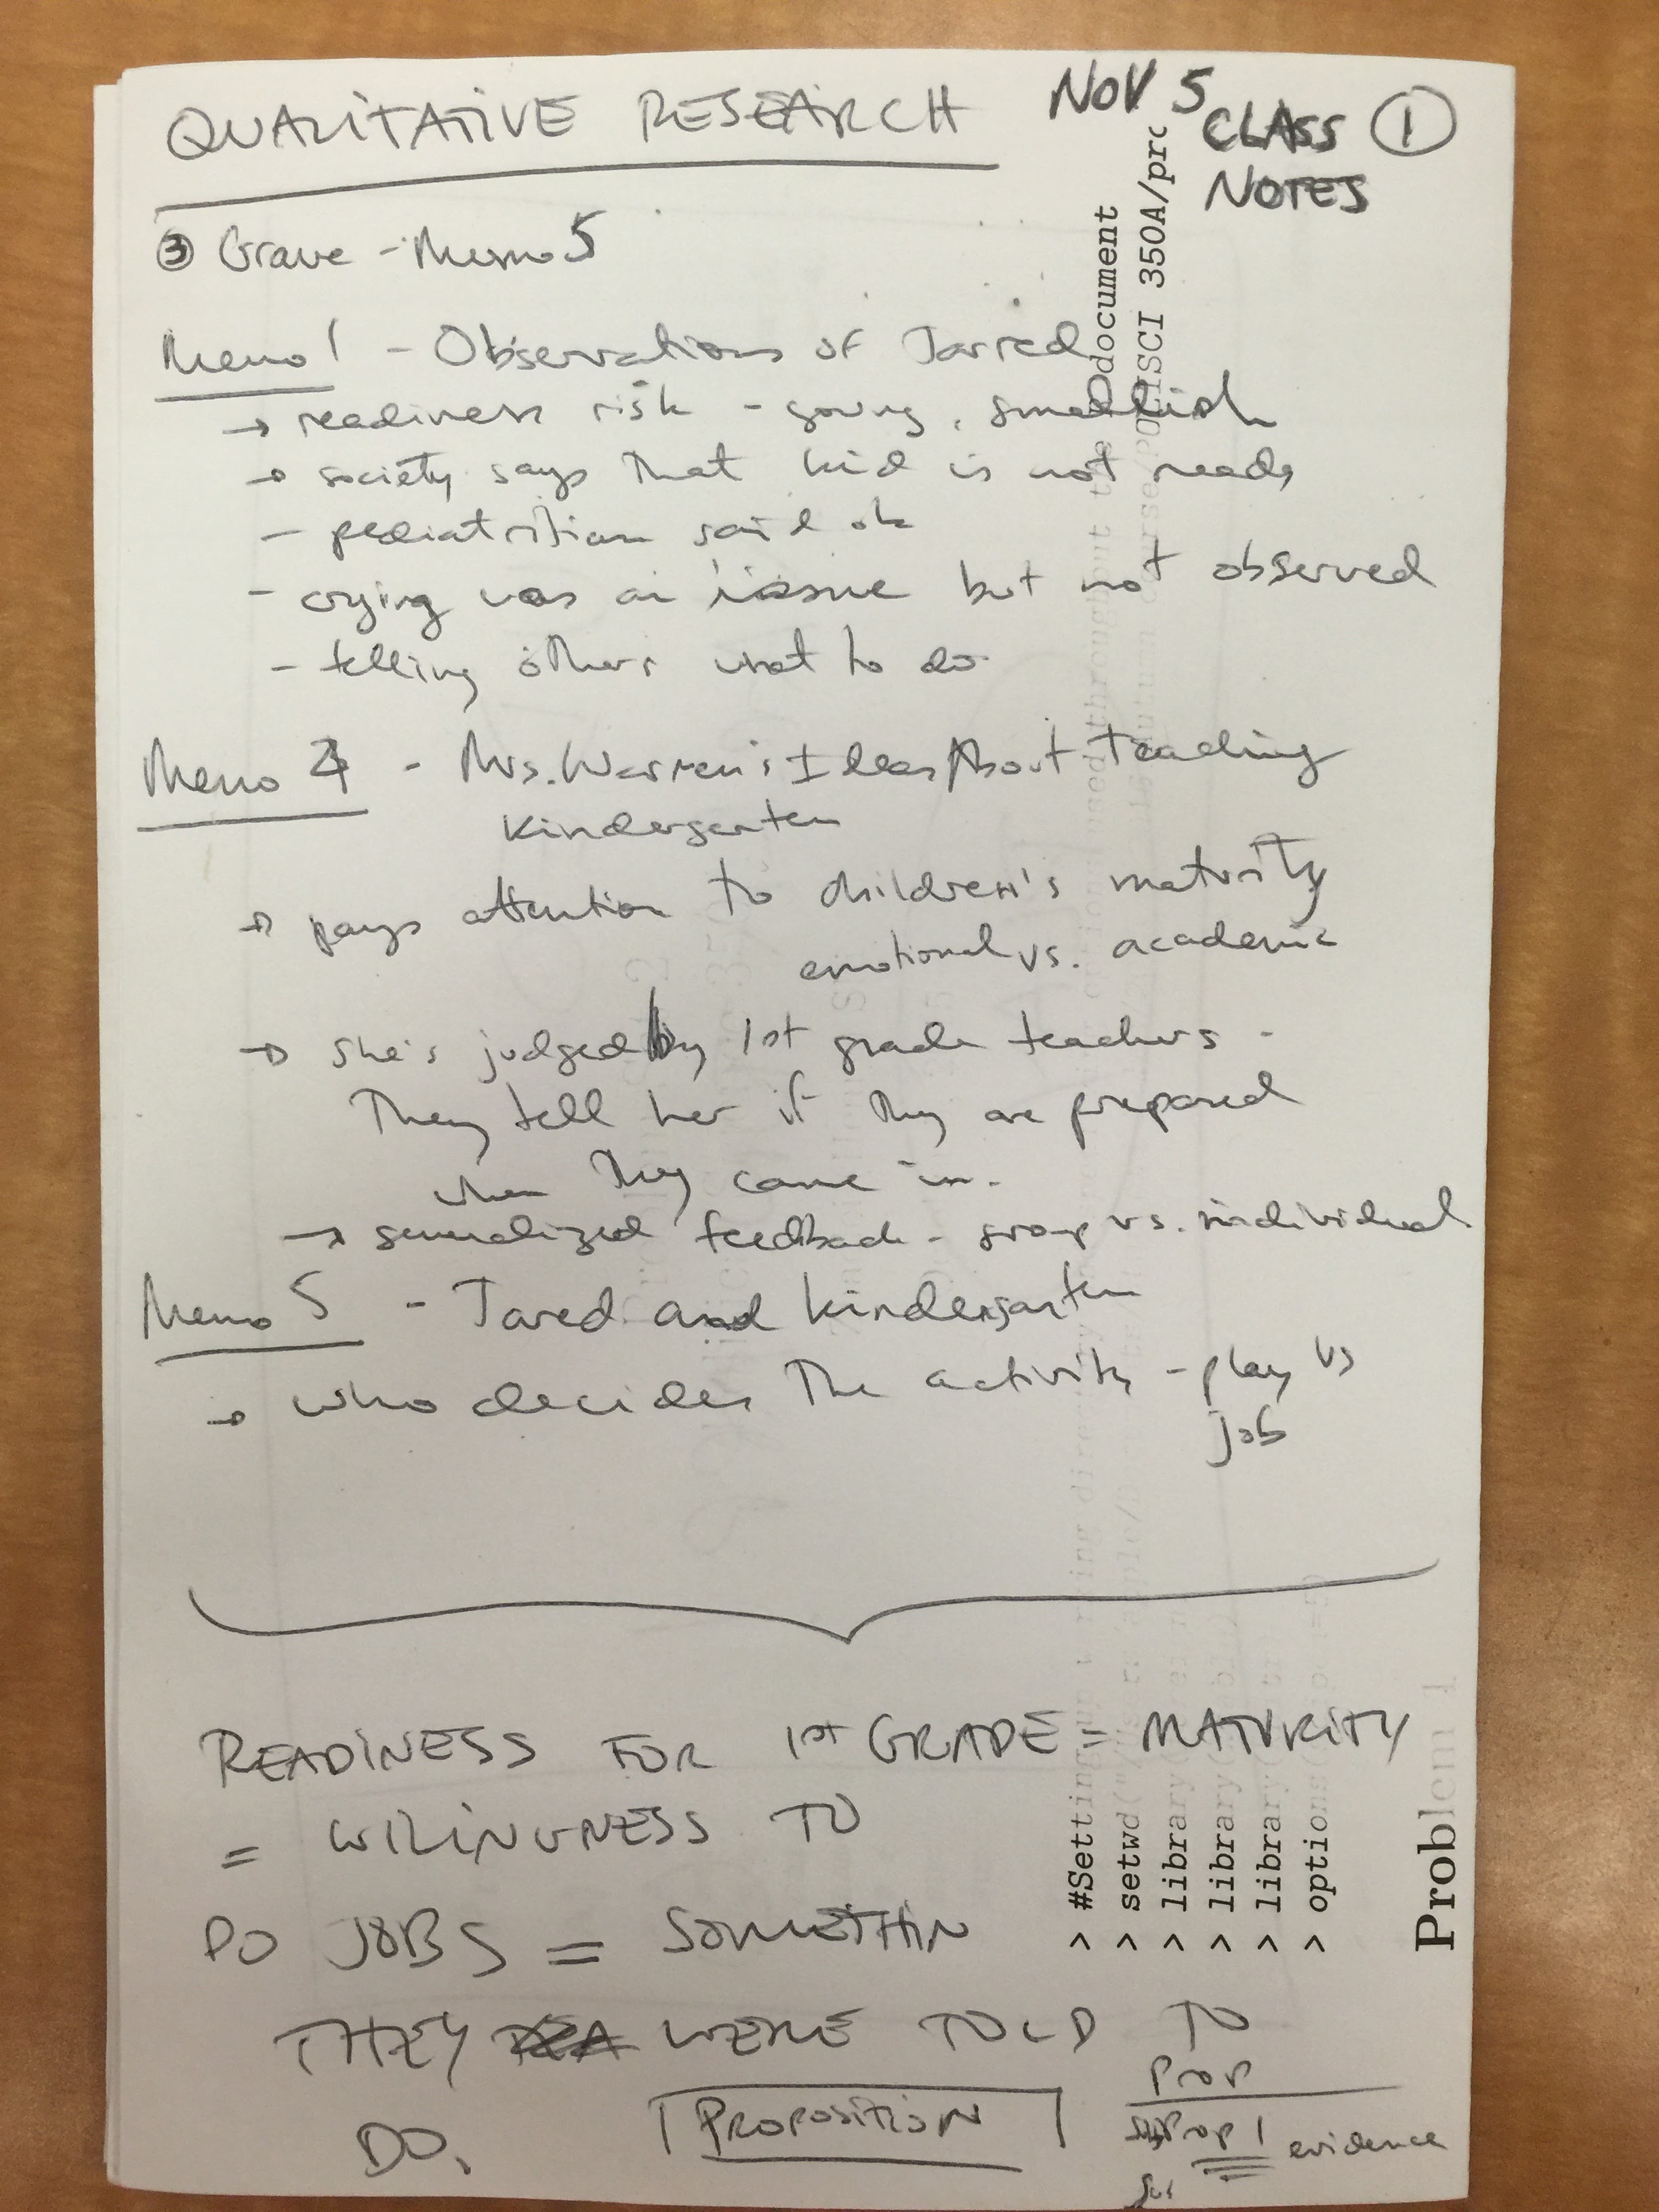 QUALITATIVE RESEARCH
NOV 5
CLASS
NOTES
1
3 Graue - Memo 5
Memo 1 - Observations of Jarred
→ readiness risk - young, smallish
→ society says that kid is not ready
- pediatritian said ok
- crying was an issue but not observed
- telling others what to do
Memo 4 - Mrs. Warren's Ideas About Teaching
Kindergarten
→ pays attention to children's maturity
emotional vs. academic
→ she's judged by 1st grade teachers -
They tell her if they are prepared
when they came in.
→ generalized feedback - group vs. individual
Memo 5 - Jared and kindergarten
→ who decides the activity - play vs
job
READINESS FOR 1st GRADE = MATURITY
= WILINGNESS TO
DO JOBS = SOMETHIN
THEY WERE TOLD TO
DO.
PROPOSITION
Prop
Prop 1
evidence
document
POLISCI 350A/pro
> #Setting
> setwd("
> library
> library
> library
> options
Problem 1